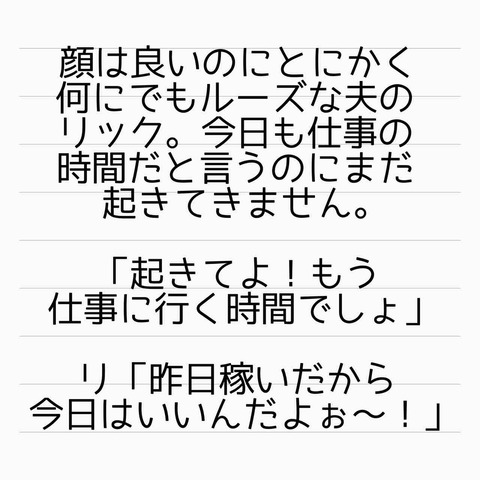 顔は良いのにとにかく
何にでもルーズな夫の
リック。今日も仕事の
時間だと言うのにまだ
起きてきません。
「起きてよ！もう
仕事に行く時間でしょ」
リ「昨日稼いだから
今日はいいんだよぉ〜！」